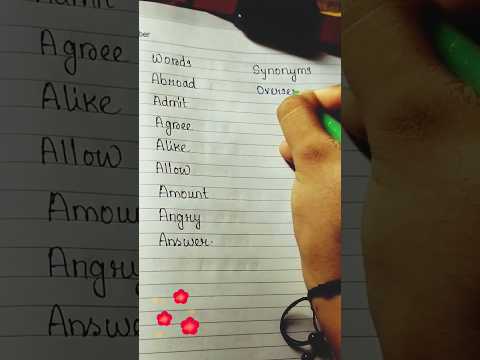 ber
Words Synonyms
Abroad Overse
Admit
Agree
Alike
Allow
Amount
Angry
Answer.
Admit
Agree
Alike
Allow
Amou
Angry
Answ